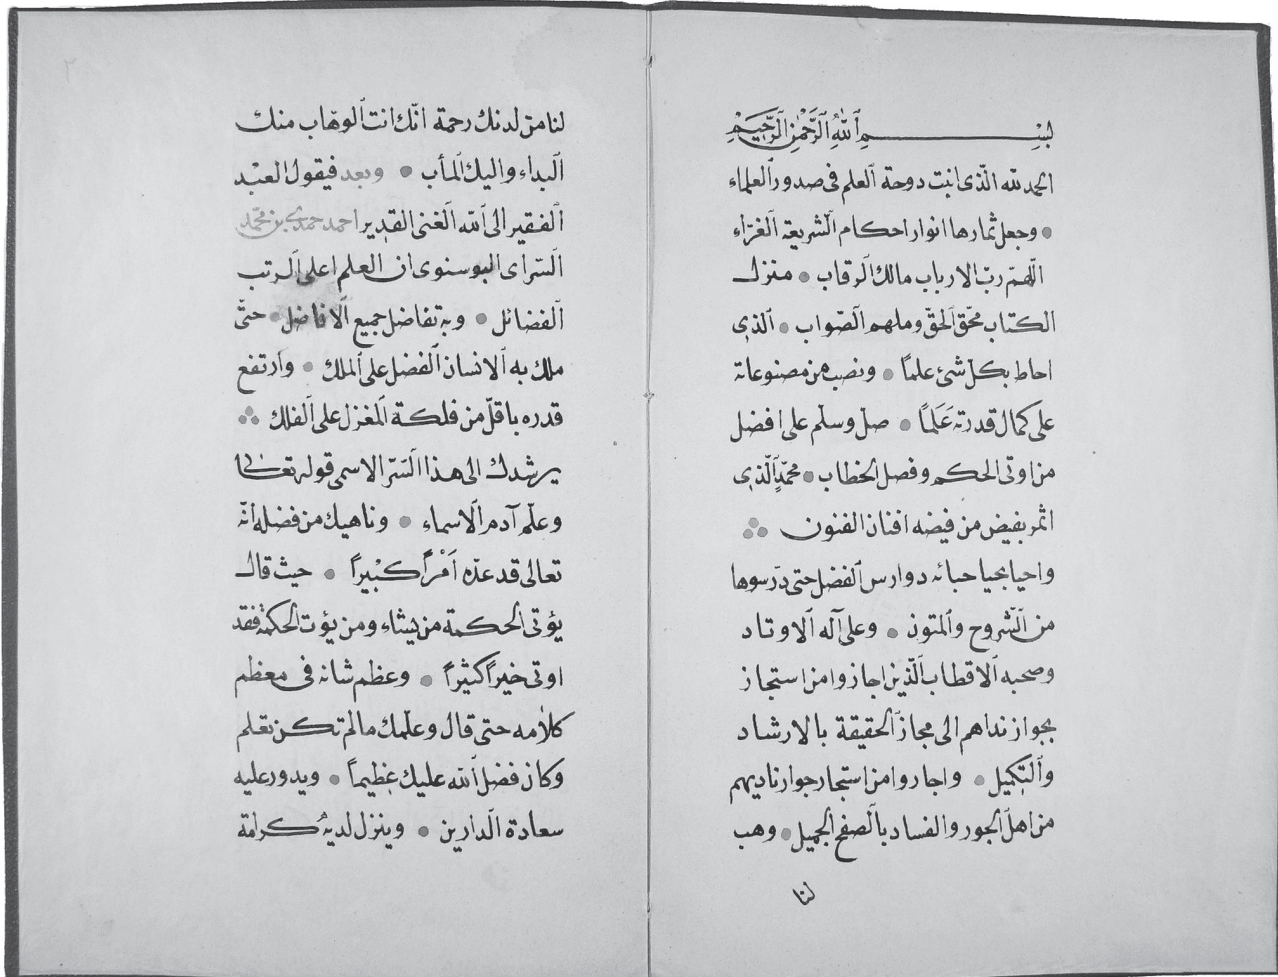 بسم الله الرحمن الرحيم
الحمد لله الّذى انبت دوحة العلم فى صدور العلماء
● وجعل ثمارها انوار احكام الشريعة الغرّاء
الّلهم ربّ الارباب مالك الرقاب ● منزل
الكتاب محقّ الحقّ وملهم الصّواب ● الذى
احاط بكلّ شئ علماً ● ونصب من مصنوعاته
على كمال قدرته عَلَماً ● صلّ وسلّم على افضل
من اوتى الحكم وفصل الخطاب ● محمّدٍ الّذى
اثمر بفيض من فيضه افنان الفنون ∴
واحيا بحيا حبائه دوارس الفضل حتى درسوها
من الشّروح والمتون ● وعلى آله الاوتاد
وصحبه الاقطاب الّذين اجازوا من استجاز
بجواز نداهم الى مجاز الحقيقة بالارشاد
والتكميل ● واجاروا من استجار جوار ناديهم
من اهل الجور والفساد بالصفح الجميل ● وهب
لنا
لنا من لدنك رحمة انّك انت الوهاب منك
البداء واليك المأب ● وبعد فيقول العبد
الفقير الى الله الغنى القدير احمد حمدى بن محمّد
السّراى البوسنوى ان العلم اعلى الرتب
الفضائل ● وبه تفاضل جميع الافاضل ● حتّى
ملك به الانسان الفضل على الملك ● وارتفع
قدره باقلّ من فلكة المغزل على الفلك ∴
يرشدك الى هذا السّرّ الاسمى قوله تعالى
وعلّم آدم الاسماء ● وناهيك من فضله انّه
تعالى قد عدّه اَمْراً كبْيراً ● حيث قال
يؤتى الحكمة من يشاء ومن يؤت الحكمة فقد
اوتى خيراً كثيراً ● وعظم شانه فى معظم
كلامه حتى قال وعلّمك مالم تكن تعلم
وكان فضل الله عليك عظيماً ● ويدور عليه
سعادة الدارين ● وينزل لديه كرامة